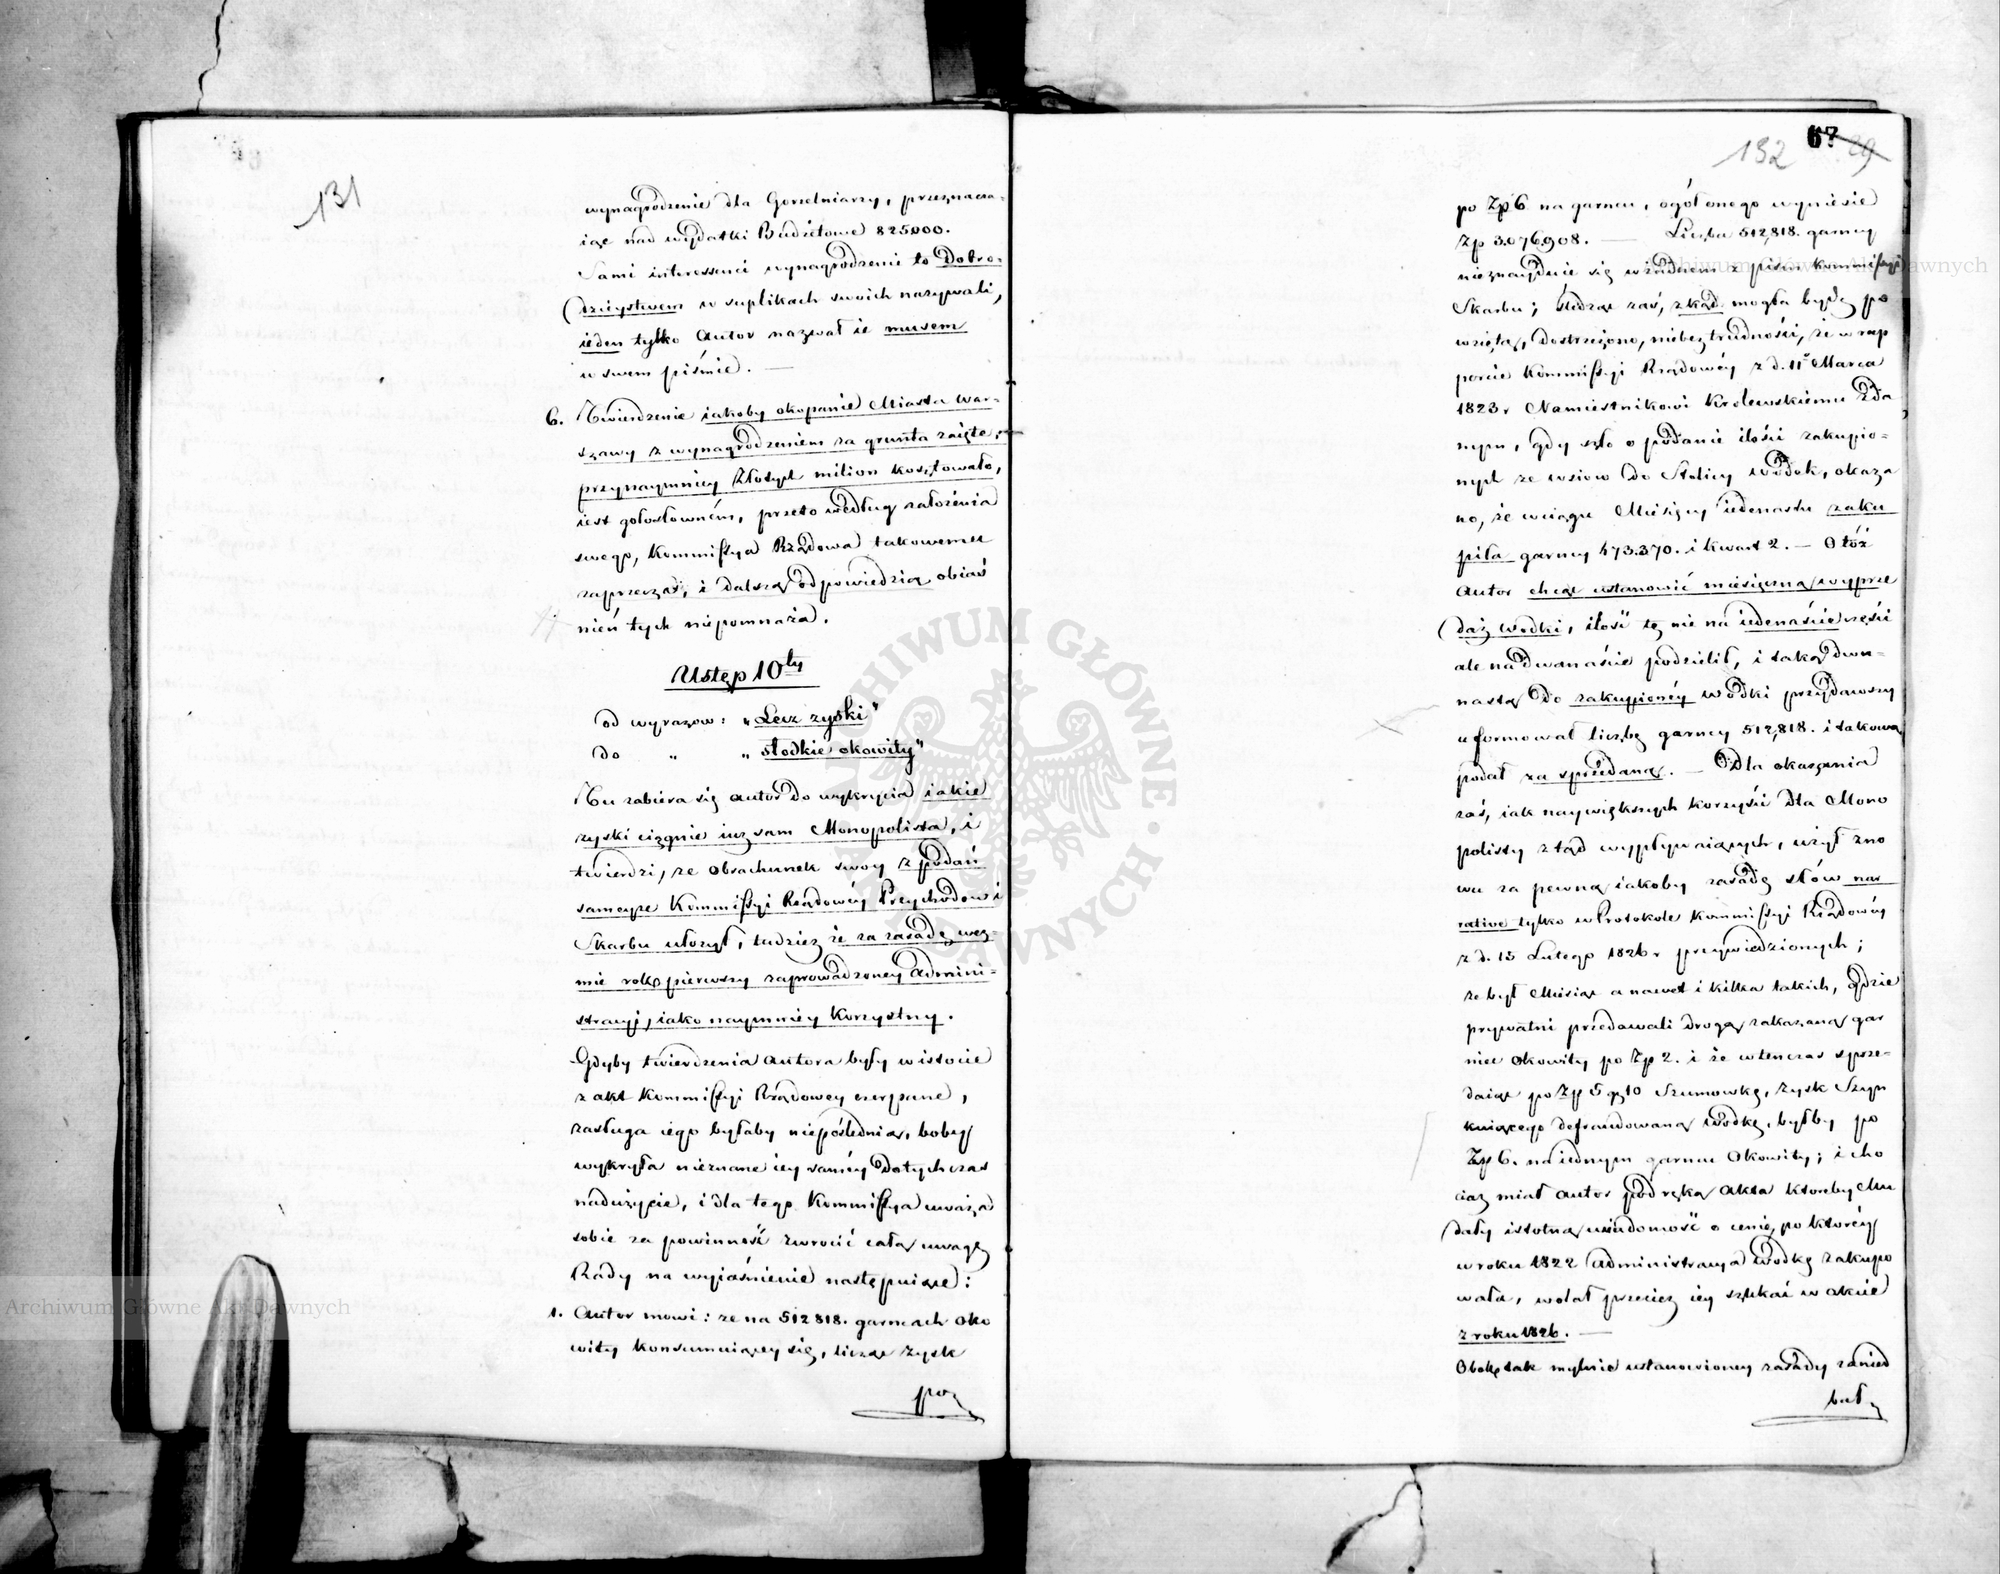 131
wynagrodzenie dla Gorzelniarzy, przeznacza-
iąc nad wydatki Budżetowe 825000.
Sami interessenci wynagrodzenie to Dobro-
dzieystwem w suplikach swoich nazywali,
ieden tylko Autor nazwał ie musem
w swem piśmie. —
6. Twierdzenie iakoby okopanie Miasta War-
szawy z wynagrodzeniem za grunta zaięte,
przynaymniey Złotych milion kosztowało,
iest gołosłowném, przeto według założenia
swego, Kommissya Rządowa takowemu
zaprzecza, i dalszą odpowiedzią obiaś
nień tych niepomnaża.
Ustęp 10ty
od wyrazow: „Lecz zyski"
do „ „słodkie okowity"
Tu zabiera się autor do wykrycia iakie
zyski ciągnie iuz sam Monopolista, i
twierdzi, ze Obrachunek swoy z podań
sameyze Kommissyi Rządowéy Przychodow i
Skarbu ułozył, tudziez że za zasadę weź-
mie rok pierwszy zaprowadzoney Admini-
stracyi, iako naymniéy korzystny.
Gdyby twierdzenia autora były w istocie
z akt Kommissyi Rządowey czerpane,
zasługa iego byłaby niepoślednia, boby
wykryła nieznane iey saméy dotychczas
nadużycie, i dla tego Kommissya uważa
sobie za powinność zwrocić całą uwagę
Rady na wyiaśnienie następuiące:
1. Autor mowi: ze na 512818. garncach Oko
wity konsumuiącey się, licząc zysk
po
132 29
67
po Zp 6 na garncu, ogół onego wyniesie
Zp 3.076.908. — Liczba 512,818. garncy
nieznayduie się w żadnem z pism Kommissyi
Skarbu; śledząc zaś, zkąd mogła bydź po
wzięta, dostrzeżono, niebez trudności, że w rap
porcie Kommissyi Rządowéy z d. 11° Marca
1823 r Namiestnikowi Krolewskiému zda
nym, gdy szło o podanie ilości zakupio-
nych ze wsiow do Stolicy wódek, okaza
no, że w ciągu Miesięcy iedenastu zaku
piła garncy 473.370. i kwart 2. — Otóż
Autor chcąc ustanowić miesięczną wyprze
daż wodki, ilość tę nie na iedenaście części
ale na dwanaście podzielił, i taką dwu-
nastą do zakupionéy wódki przydawszy
uformował liczbę garncy 512,818. i takową
podał za sprzedaną. — Dla okazania
zaś, iak naywiększych korzyści dla Mono
polisty ztąd wypływaiących, użył zno
wu za pewną iakoby zasadę słów nar
rative tylko w Protokole Kommissyi Rządowéy
z d. 15 Lutego 1826 r przywiedzionych;
ze był Miesiąc a nawet i kilka takich, gdzie
prywatni przedawali drogą zakazaną gar
niec Okowity po Zp 2. i że wtenczas sprze-
daiąc po Zp 5 gr 10 Szumowkę, zysk Szyn
kuiącego defraudowaną wódkę, byłby po
Zp 6. na iednym garncu Okowity; i cho
ciaz miał autor pod ręką Akta ktoreby Mu
dały istotną wiadomość o cenie, po którey
w roku 1822 Administracya wódkę zakupo
wała, wolał przeciez iey szukać w akcie
z roku 1826. —
Obok tak mylnie ustanowioney zasady zanied
bał
Archiwum Główne Akt Dawnych
Archiwum Główne Akt Dawnych
ARCHIWUM GŁÓWNE AKT DAWNYCH